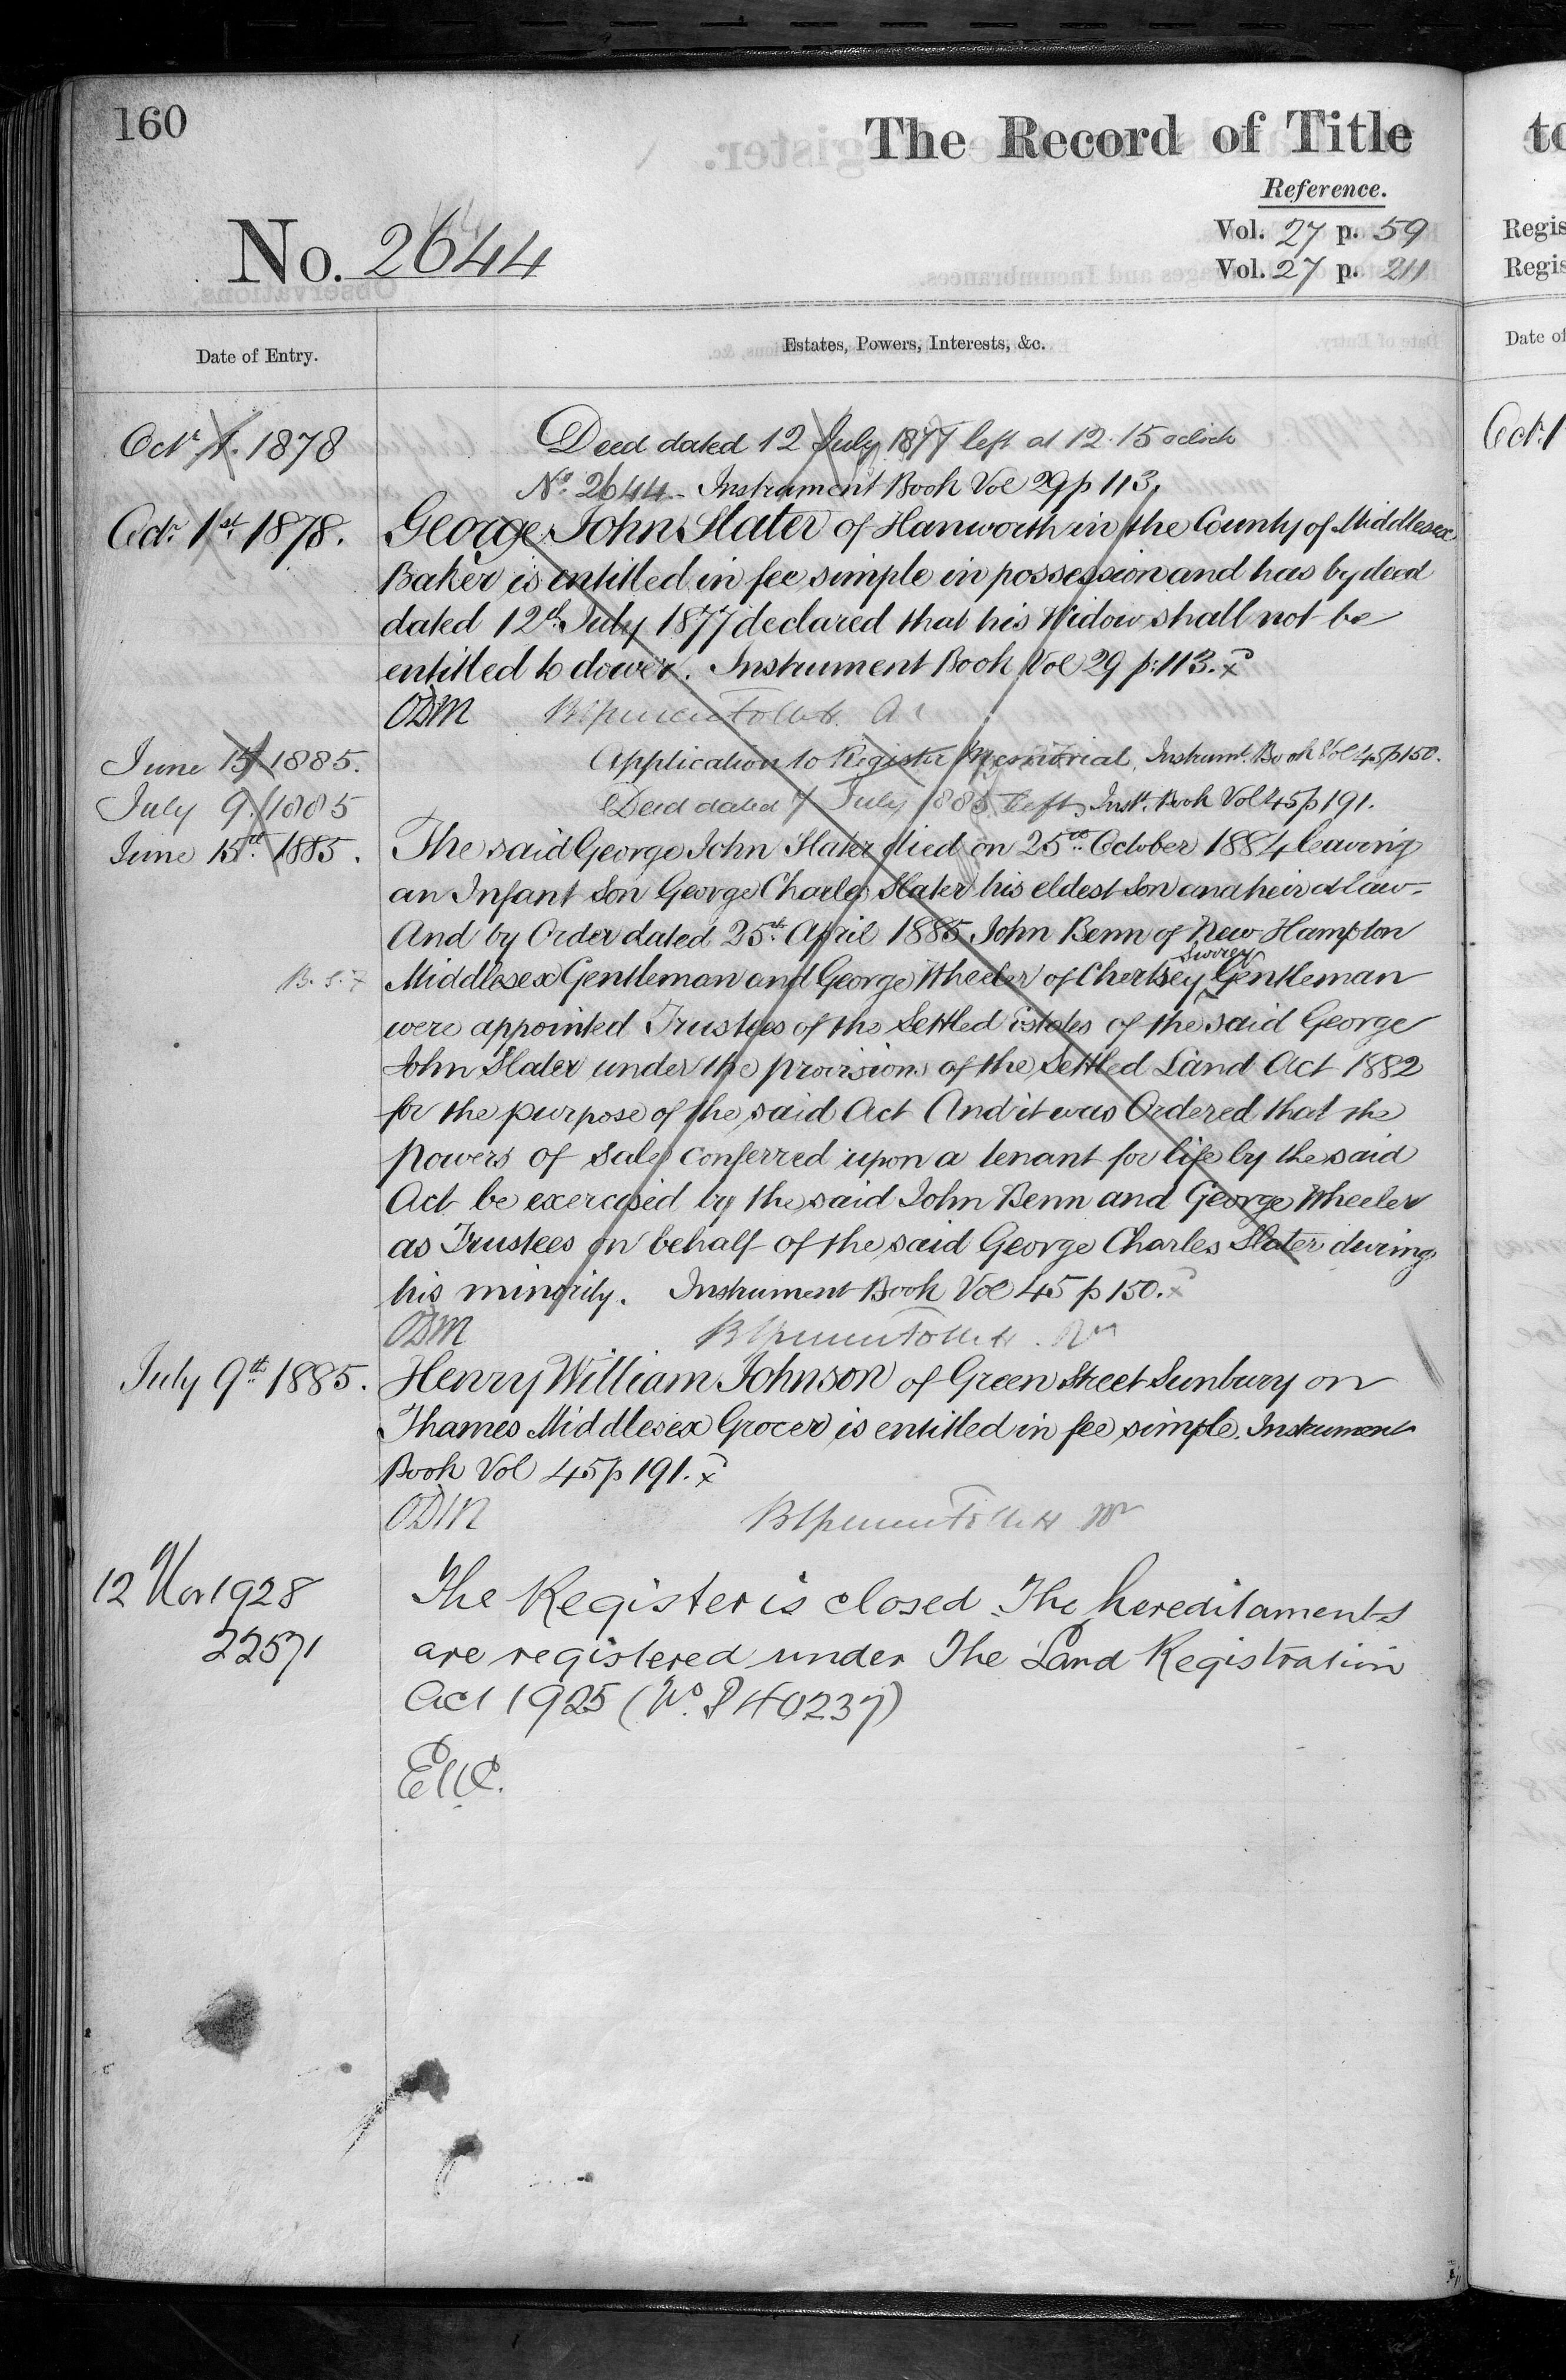 160
The Record of Title
Reference.
Vol. 27 p. 59
Vol. 27 p. 211
No. 2644
Date of Entry.
Estates, Powers, Interests, &c.
Octr 1. 1878
Deed dated 12 July 1877 left at 12.15 oclock
No. 2644 - Instrument Book Vol 29 p 113.
Octr 1st 1878.
George John Slater of Hanworth in the County of Middlesex
Baker is entitled in fee simple in possession and has by deed
dated 12th July 1877 declared that his Widow shall not be
entitled to dower. Instrument Book Vol 29 p: 113. x
ODM
June 15 1885.
Application to Register Memorial, Instrumt. Book Vol 45 p 150.
July 9. 1885
Deed dated 7 July 1885 left, Inst. Book Vol 45 p 191.
June 15th 1885.
The said George John Slater died on 25th October 1884 leaving
an Infant Son George Charles Slater his eldest Son and heir at law.
And by Order dated 25th April 1885 John Benn of New Hampton
Surrey
Middlesex Gentleman and George Wheeler of Chertsey Gentleman
were appointed Trustees of the Settled Estates of the said George
John Slater under the provisions of the Settled Land Act 1882
for the purpose of the said Act And it was Ordered that the
powers of Sale conferred upon a tenant for life by the said
Act be exercised by the said John Benn and George Wheeler
as Trustees on behalf of the said George Charles Slater during
his minority. Instrument Book Vol 45 p 150. x
ODM
July 9th 1885.
Henry William Johnson of Green Street Sunbury on
Thames Middlesex Grocer is entitled in fee simple. Instrument
Book Vol 45 p 191. x
ODM
12 Nov 1928
22571
The Register is closed. The hereditaments
are registered under The Land Registration
Act 1925 (No. P 40237)
to
Regis
Regis
Date of
Oct. 1